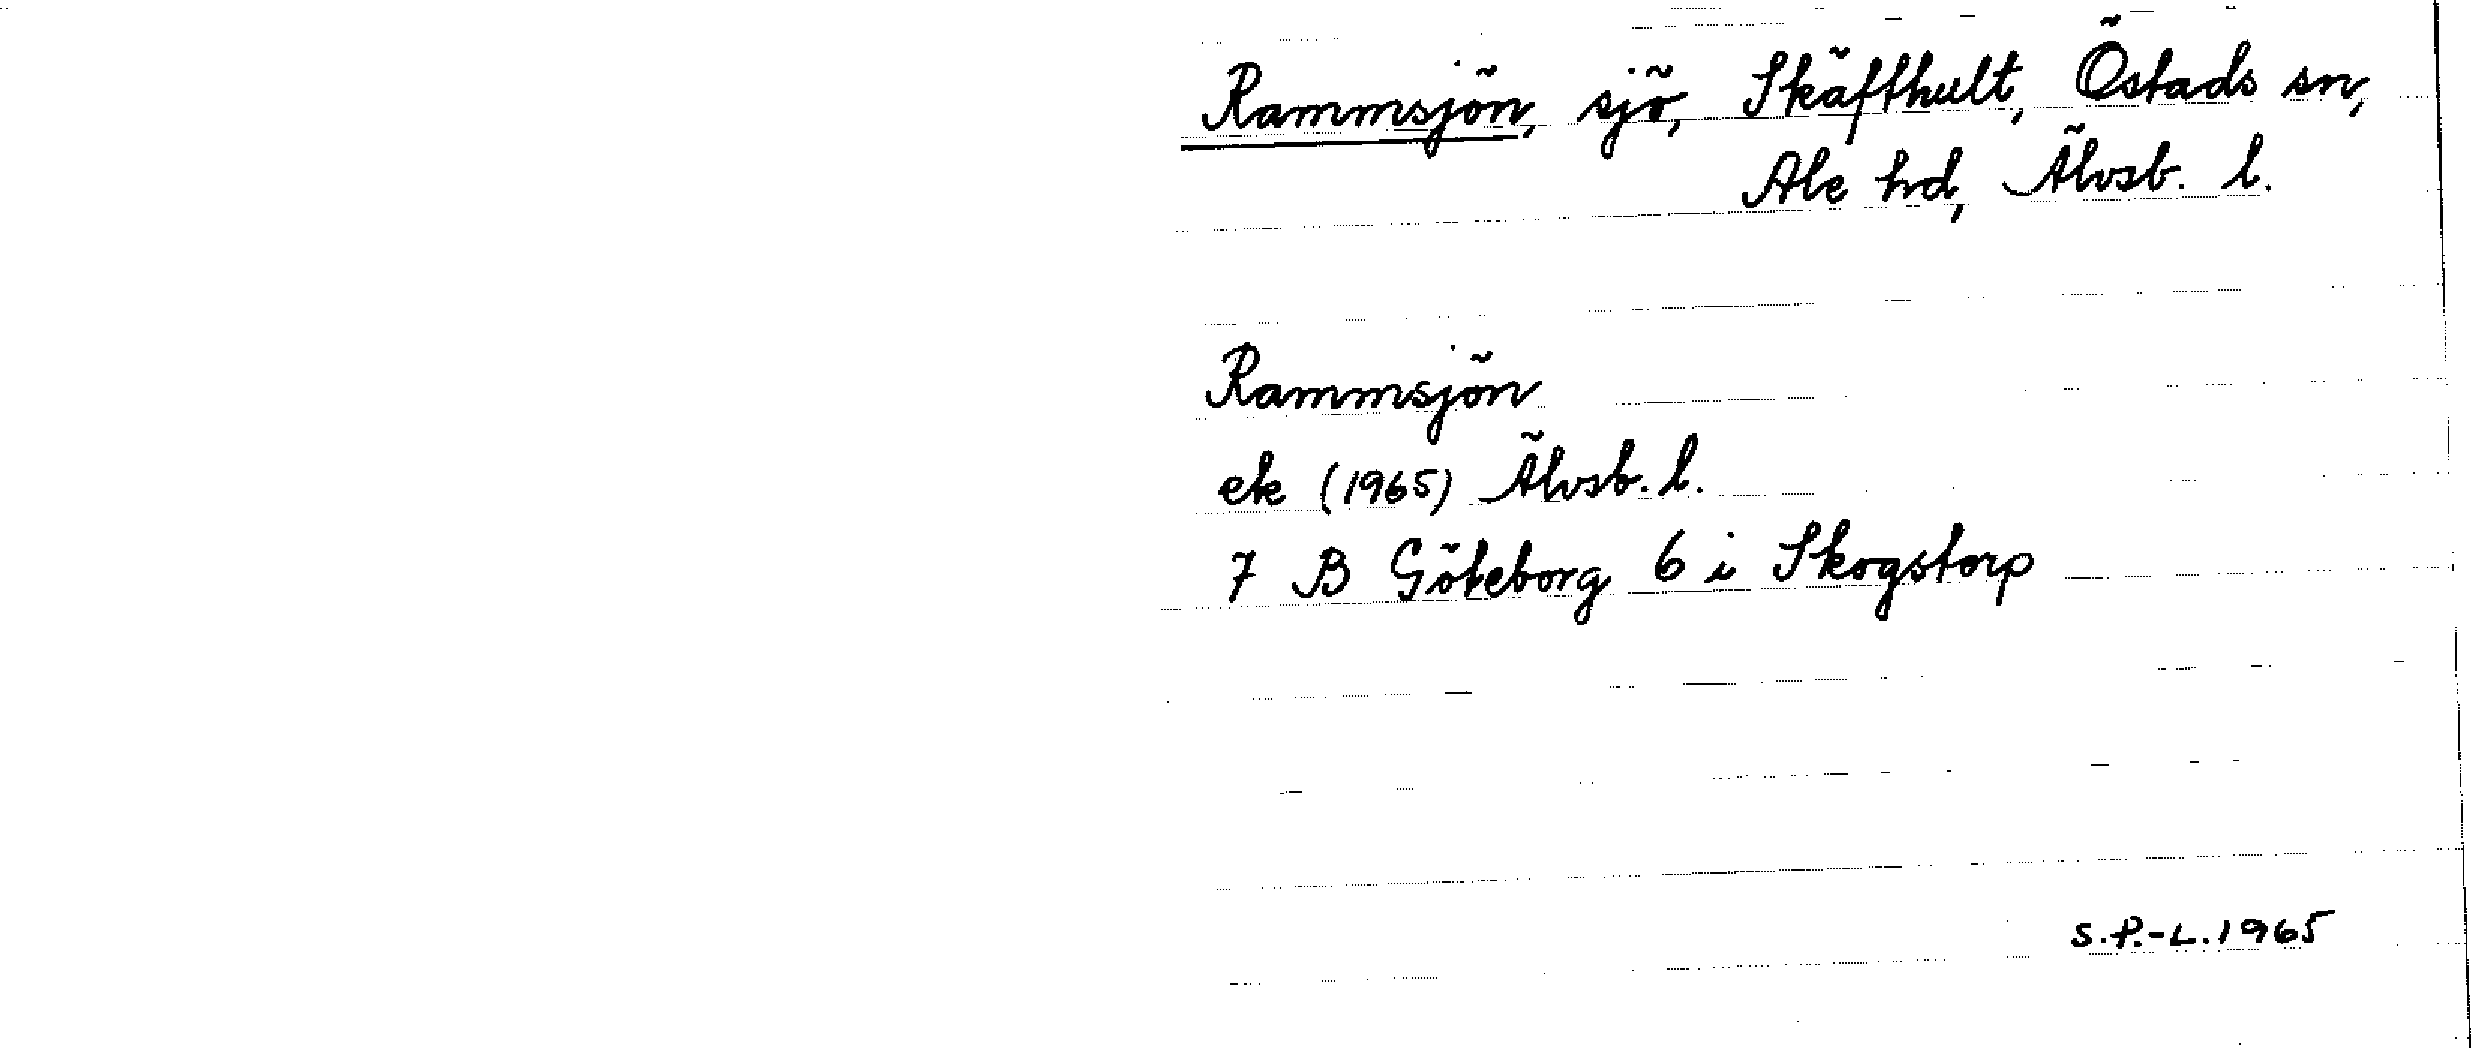 Rammsjön, sjö, Skäfthult, Östads sn,
Ale hd, Älvsb. l.
Rammsjön
ek (1965) Älvsb. l.
7 B Göteborg 6 i Skogstorp
S.P.-L. 1965